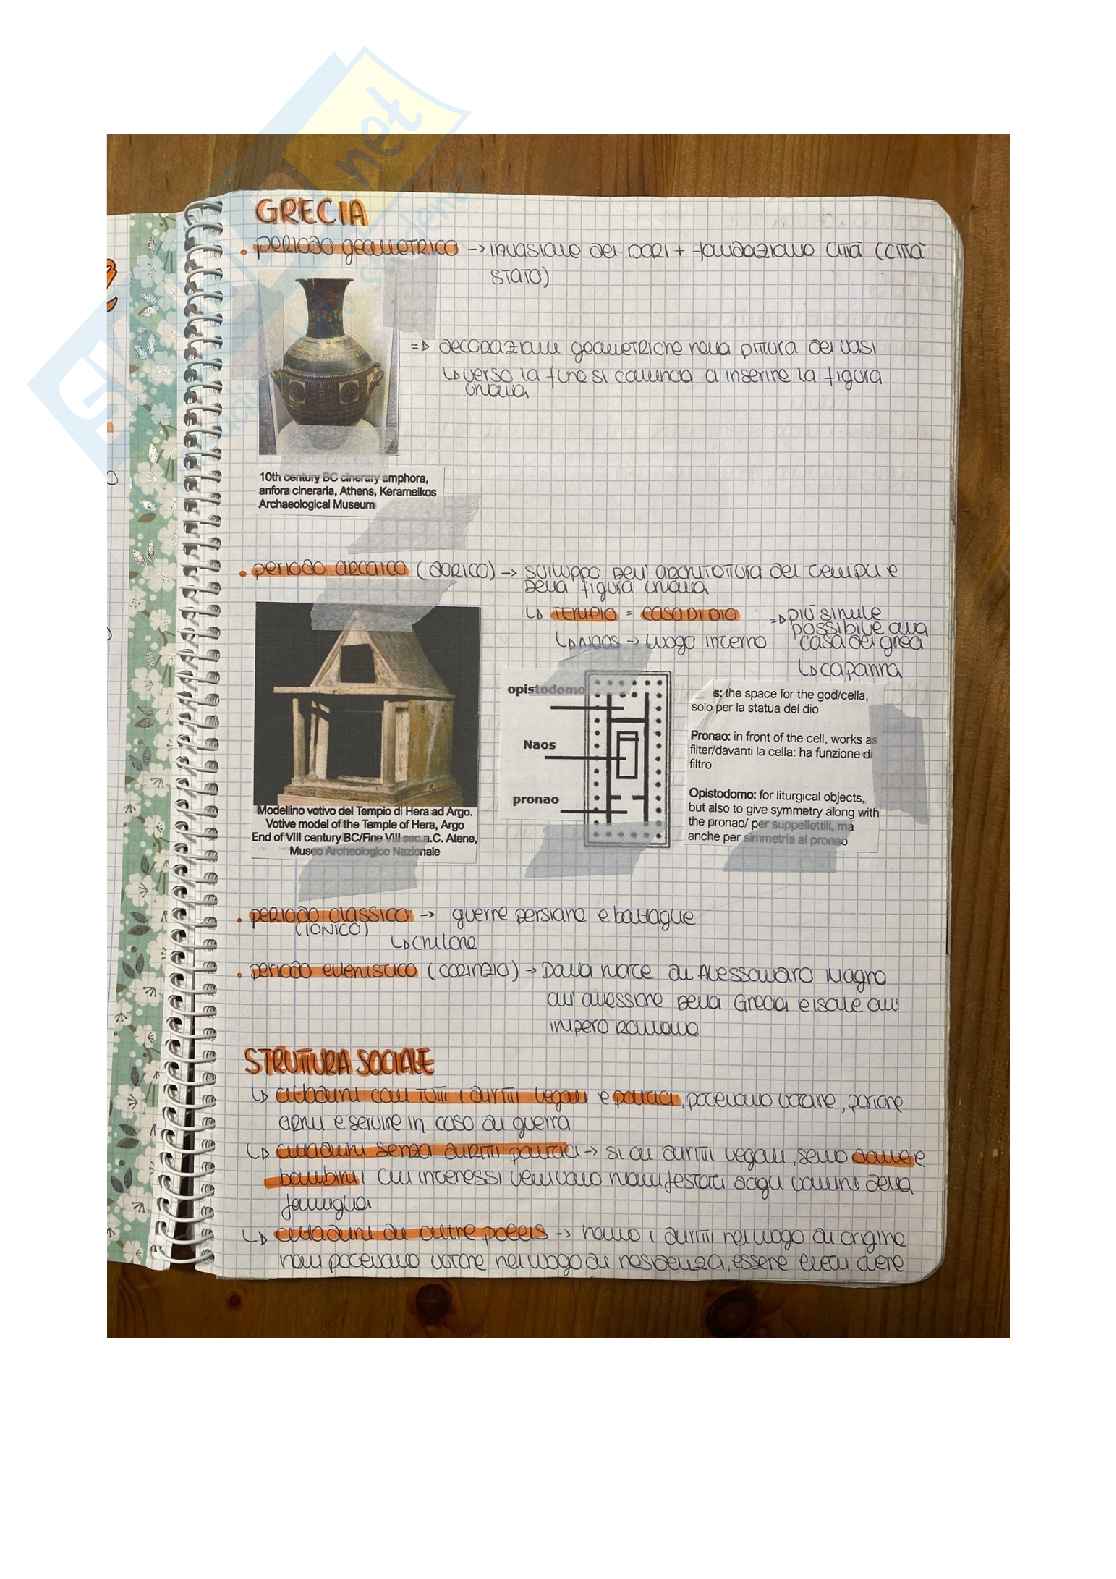 GRECIA
• periodo geometrico → invasione dei dori + fondazione città (città
stato)
=> decorazioni geometriche nella pittura dei vasi
↳ verso la fine si comincia a inserire la figura
umana
10th century BC cinerary amphora,
anfora cineraria, Athens, Kerameikos
Archaeological Museum
• periodo arcaico (dorico) → sviluppo dell'architettura dei templi e
della figura umana
↳ tempio = casa di dio => più simile
possibile alla
casa dei greci
↳ capanna
↳ naos → luogo interno
opistodomo
Naos
pronao
s: the space for the god/cella,
solo per la statua del dio
Pronao: in front of the cell, works as
filter/davanti la cella: ha funzione di
filtro
Opistodomo: for liturgical objects,
but also to give symmetry along with
the pronao/ per suppellettili, ma
anche per simmetria al pronao
Modellino votivo del Tempio di Hera ad Argo.
Votive model of the Temple of Hera, Argo
End of VIII century BC/Fine VIII sec.a.C. Atene,
Museo Archeologico Nazionale
• periodo classico → guerre persiane e battaglie
(ionico)
↳ cimitone
• periodo ellenistico (corinzio) → Dalla morte di Alessandro Magno
all'annessione della Grecia e isole all'
impero romano
STRUTTURA SOCIALE
↳ cittadini con tutti i diritti legali e politici, potevano votare, portare
armi e servire in caso di guerra
↳ cittadini senza diritti politici → si ai diritti legali, sono donne e
bambini i cui interessi venivano manifestati dagli uomini della
famiglia
↳ cittadini di altre poleis → hanno i diritti nel luogo di origine
non potevano votare nel luogo di residenza, essere eletti avere
net